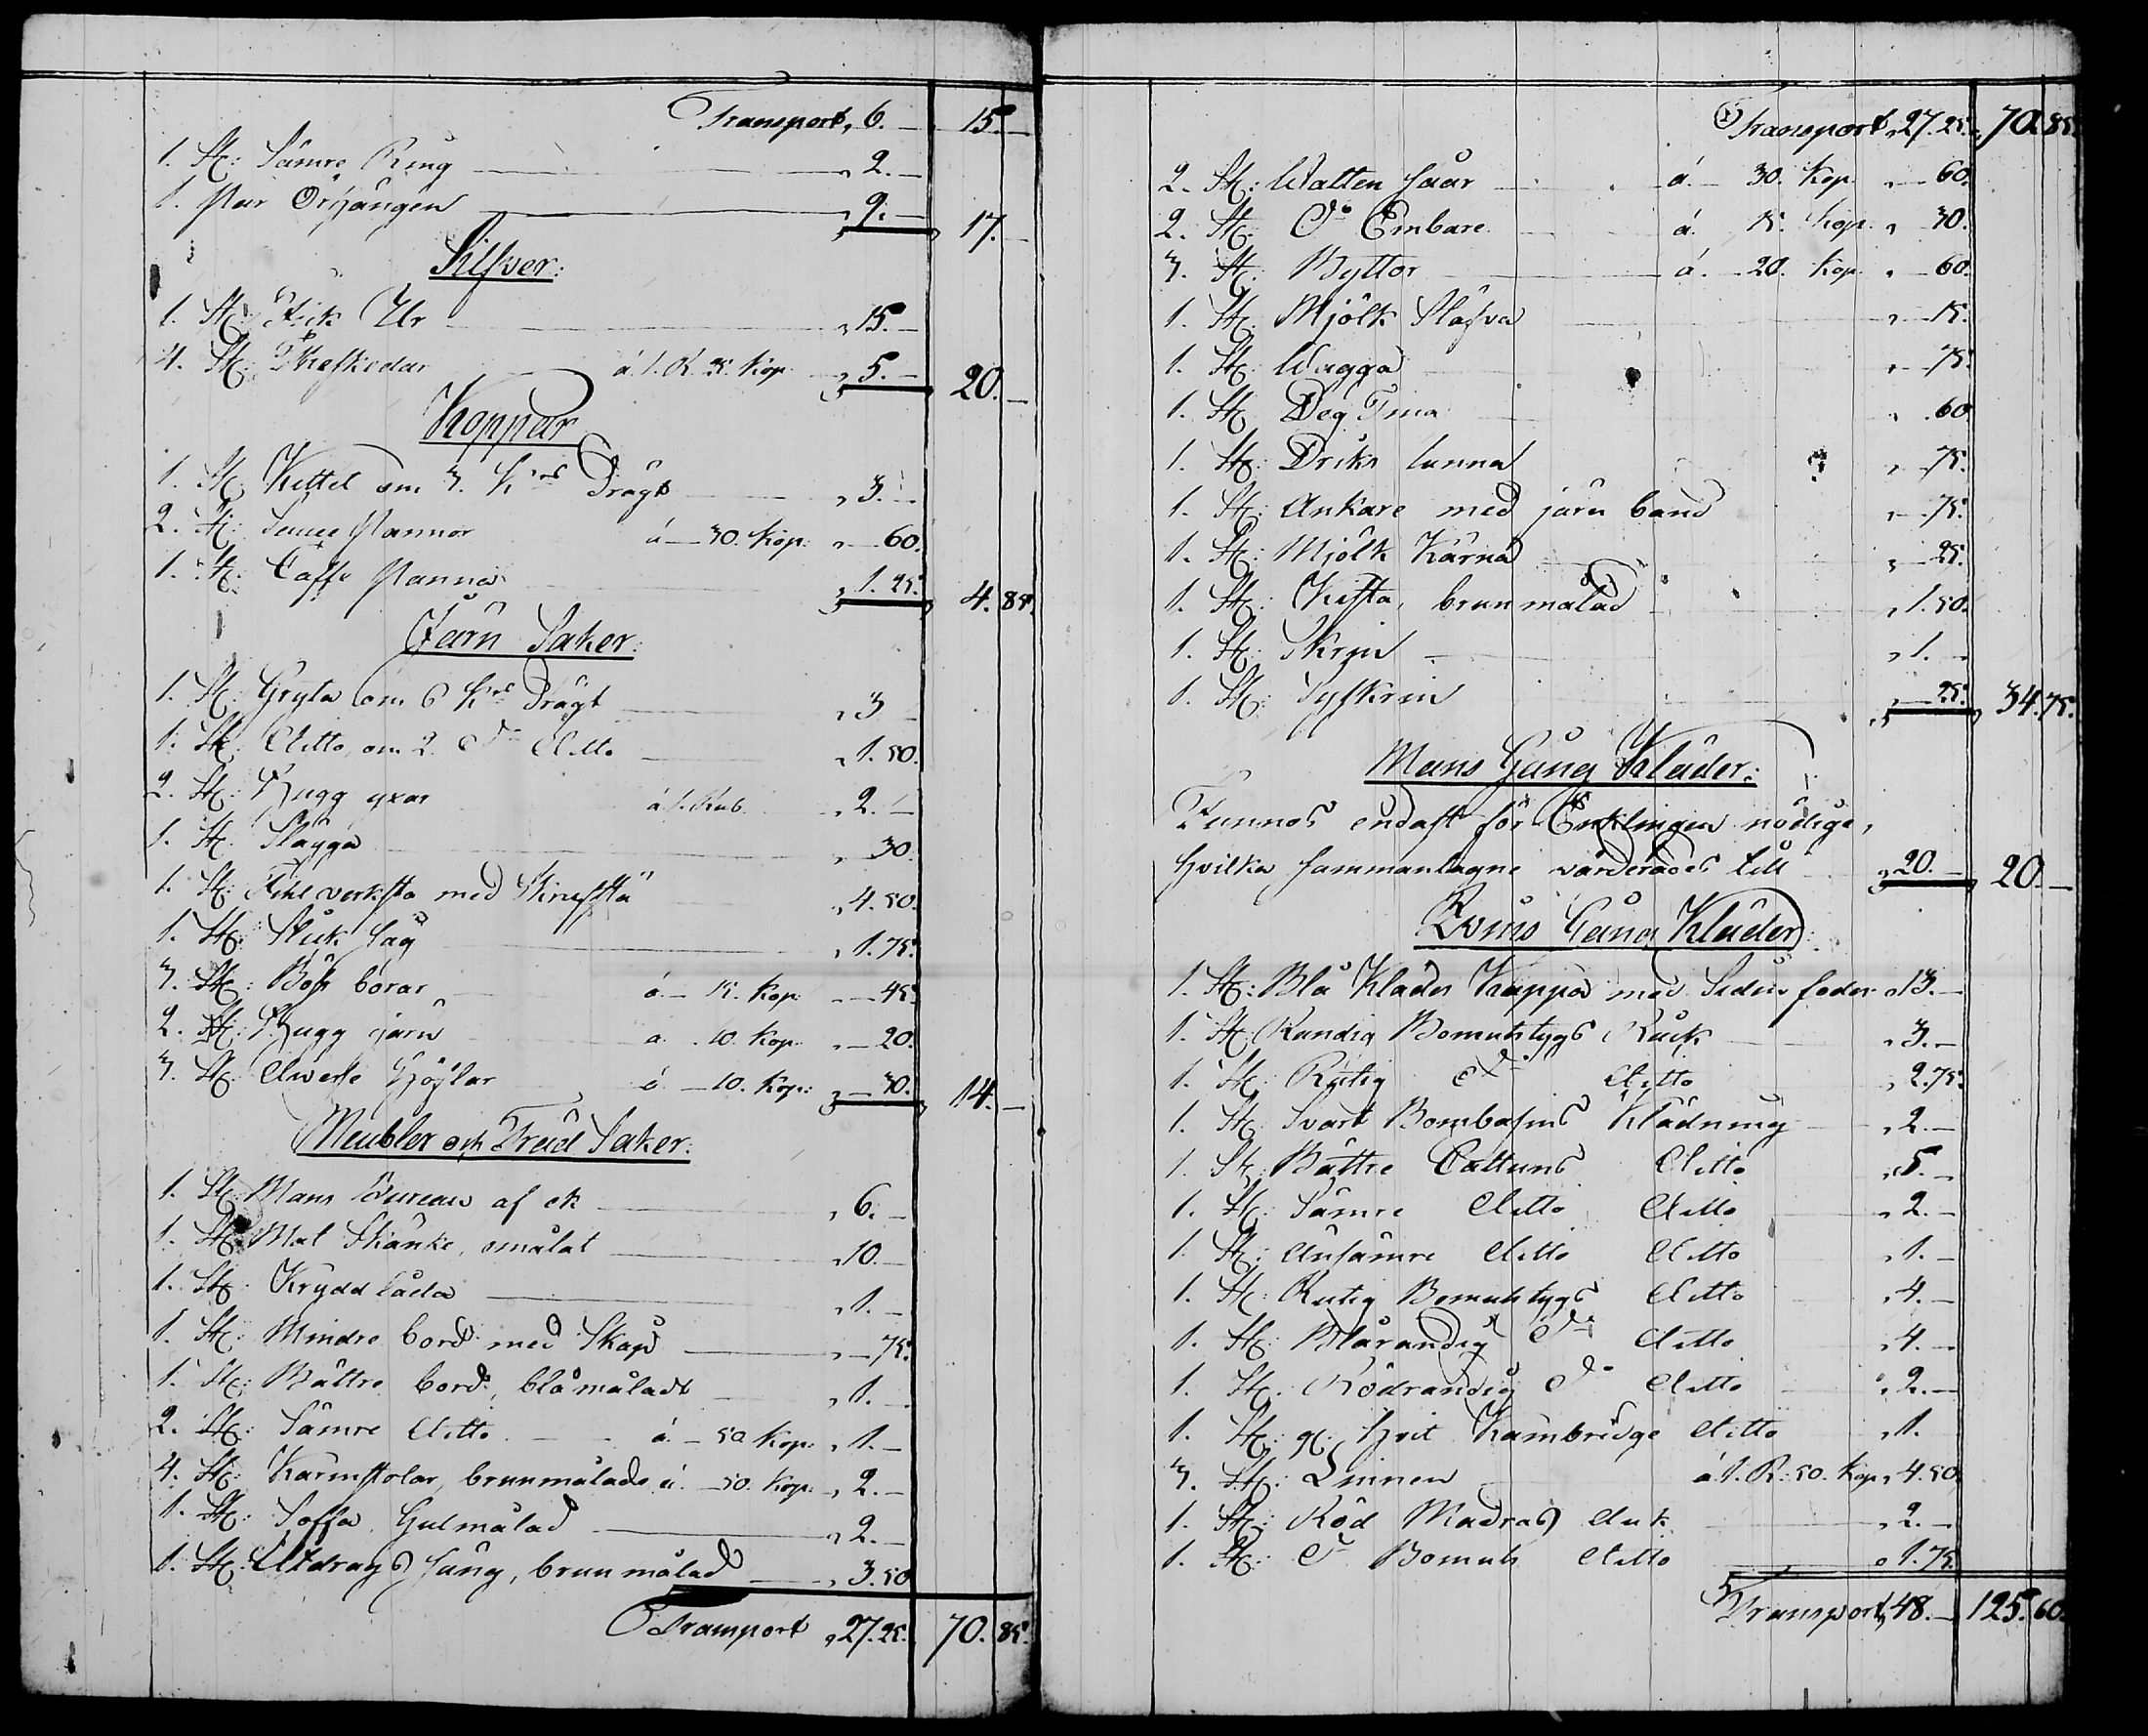 Transport, 6. — 15. —
1. St: Sämre Ring — „ 2. —
1. Par Örhängen — „ 9. — 17. —
Silfver:
1. St: Fick Ur — „ 15. —
4. St: Theskedar á 1. R. 25. Kop. „ 5. — 20. —
Koppar
1. St: Kittel om 3. K:rs Drägt — „ 3. —
2. St: Pannor á — 30. Kop: „ — 60.
1. St: Caffe Panna — „ 1. 25. 4. 85.
Järn Saker:
1. St: Gryta om 6 K:rs Drägt — „ 3
1. St: Ditto, om 2. d:o Ditto — „ 1. 50.
2. St: Hugg yxar á 1. Rub. „ 2. —
1. St: Slägga — „ 30.
1. St: med — „ 4. 50.
1. St: Stick såg — „ 1. 75.
3. St: borar á — 15. Kop: „ — 45.
2. St: Hugg järn a. 10. Kop. „ — 20.
3. St: Diverse Höflar á — 10. Kop: „ — 30. 14. —
Meubler och Träd Saker:
1. St: Mans Bureau af ek — „ 6. —
1. St: Mat Skänke, omålat — „ 10. —
1. St: Krydd låda — „ 1. —
1. St: Mindre bord med Skåp — „ — 75.
1. St: Bättre bord, blåmåladt — „ 1. —
2. St: Sämre Ditto á — 50 Kop: „ 1. —
4. St: Karmstolar, brunmålade á — 50. Kop: „ 2. —
1. St: Soffa Gulmålad — „ 2. —
1. St: Utdrags säng, brunmålad — „ 3. 50
Transport „ 27. 25. 70. 85.
Transport „ 27. 25. „ 70. 85.
2. St: Watten Såar á. — 30. Kop. „ — 60.
2. St: D:o Embare á. 15. Kop. „ 30.
3. St: Byttor á. — 20. Kop. „ — 60.
1. St: Mjölk Stäfva „ — 15.
1. St: Wagga „ — 75.
1. St: Deg Tina „ 60
1. St: Dricks kanna „ 75.
1. St: Ankare med järn band „ 75.
1. St: Mjölk Kärna „ — 25.
1. St: Kista, brunmålad „ 1. 50.
1. St: Skrin — „ 1. —
1. St: Syskrin „ — 25. 34. 75.
Mans Gång Kläder:
Funnos endast för Enklingen nödige,
hvilka sammantagne värderades till „ 20. — 20. —
Qvins Gång Kläder:
1. St: Blå Klädes Kappa med Siden foder „ 13. —
1. St: Randig Bomulstygs Råck — „ 3. —
1. St: Rutig d:o Ditto „ 2. 75.
1. St: Svart Bombasins Klädning „ 2. —
1. St: Bättre Cattuns Ditto „ 5. —
1. St: Sämre Ditto Ditto „ 2. —
1. St: Ditto Ditto „ 1. —
1. St: Rutig Bomulstygs Ditto „ 4. —
1. St: Blårandig d:o Ditto „ 4. —
1. St: Rödrandig d:o Ditto „ 2. —
1. St: gl: Hvit Kambridge Ditto „ 1.
3. St: Linnen á 1. R: 50. Kop „ 4. 50.
1. St: Röd Madras Duk „ 2. —
1. St: d:o Bomuls Ditto „ 1. 75.
Transport „ 48. — 125. 60.